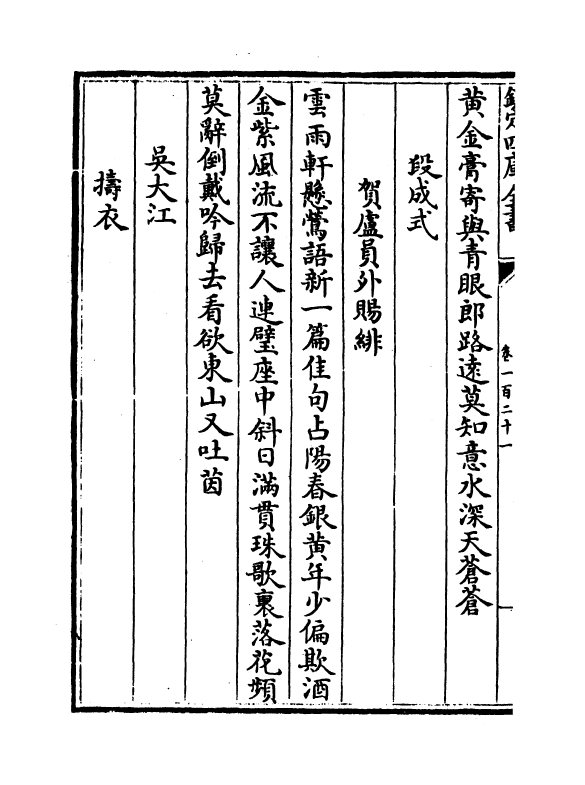 欽定四庫全書
卷一百二十一
黄金膏寄與青眼郎路遠莫知意水深天蒼蒼
段成式
賀盧員外賜緋
雲雨軒懸鶯語新一篇佳句占陽春銀黄年少偏欺酒
金紫風流不讓人連璧座中斜日滿貫珠歌裏落花頻
莫辭倒載吟歸去看欲東山又吐茵
吳大江
擣衣